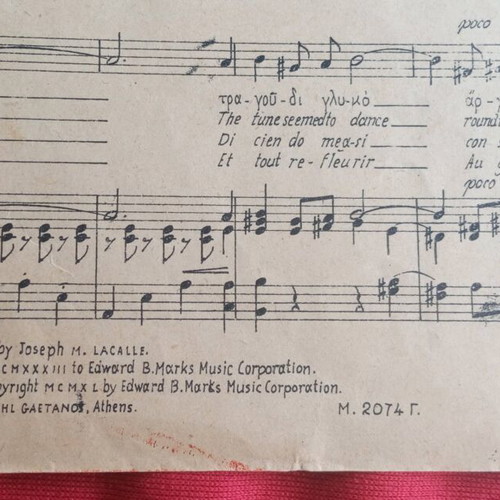 poco
τρα-γού-δι γλυ-κὸ
The tune seemed to dance
round
Di cien do mea-si
con
Et tout re-fleurir
Au
poco
by Joseph M. LACALLE.
CMXXXIII to Edward B. Marks Music Corporation.
pyright MCMXL by Edward B. Marks Music Corporation.
HL GAETANOS, Athens.
M. 2074 Γ.